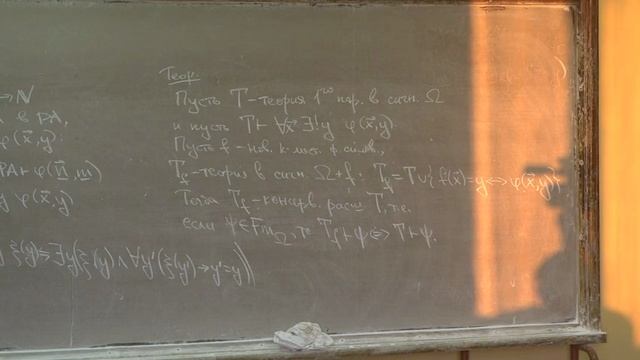 → N
в PA,
φ(x⃗,y)
PA⊢φ(n,m)
φ(x⃗,y)
ξ(y)⇔∃y(ξ(y)∧∀y'(ξ(y')→y'=y))
Теор.
Пусть T – теория 1го пор. в сигн. Ω
и пусть T⊢∀x⃗ ∃!y φ(x⃗,y)
Пусть f – нов. к-мест. ф. симв.,
T_f – теория в сигн. Ω+f: T_f = T∪{f(x⃗)=y↔φ(x⃗,y)}
Тогда T_f – консерв. расш. T, т.е.
если ψ∈Fm_Ω, то T_f⊢ψ⇔T⊢ψ.